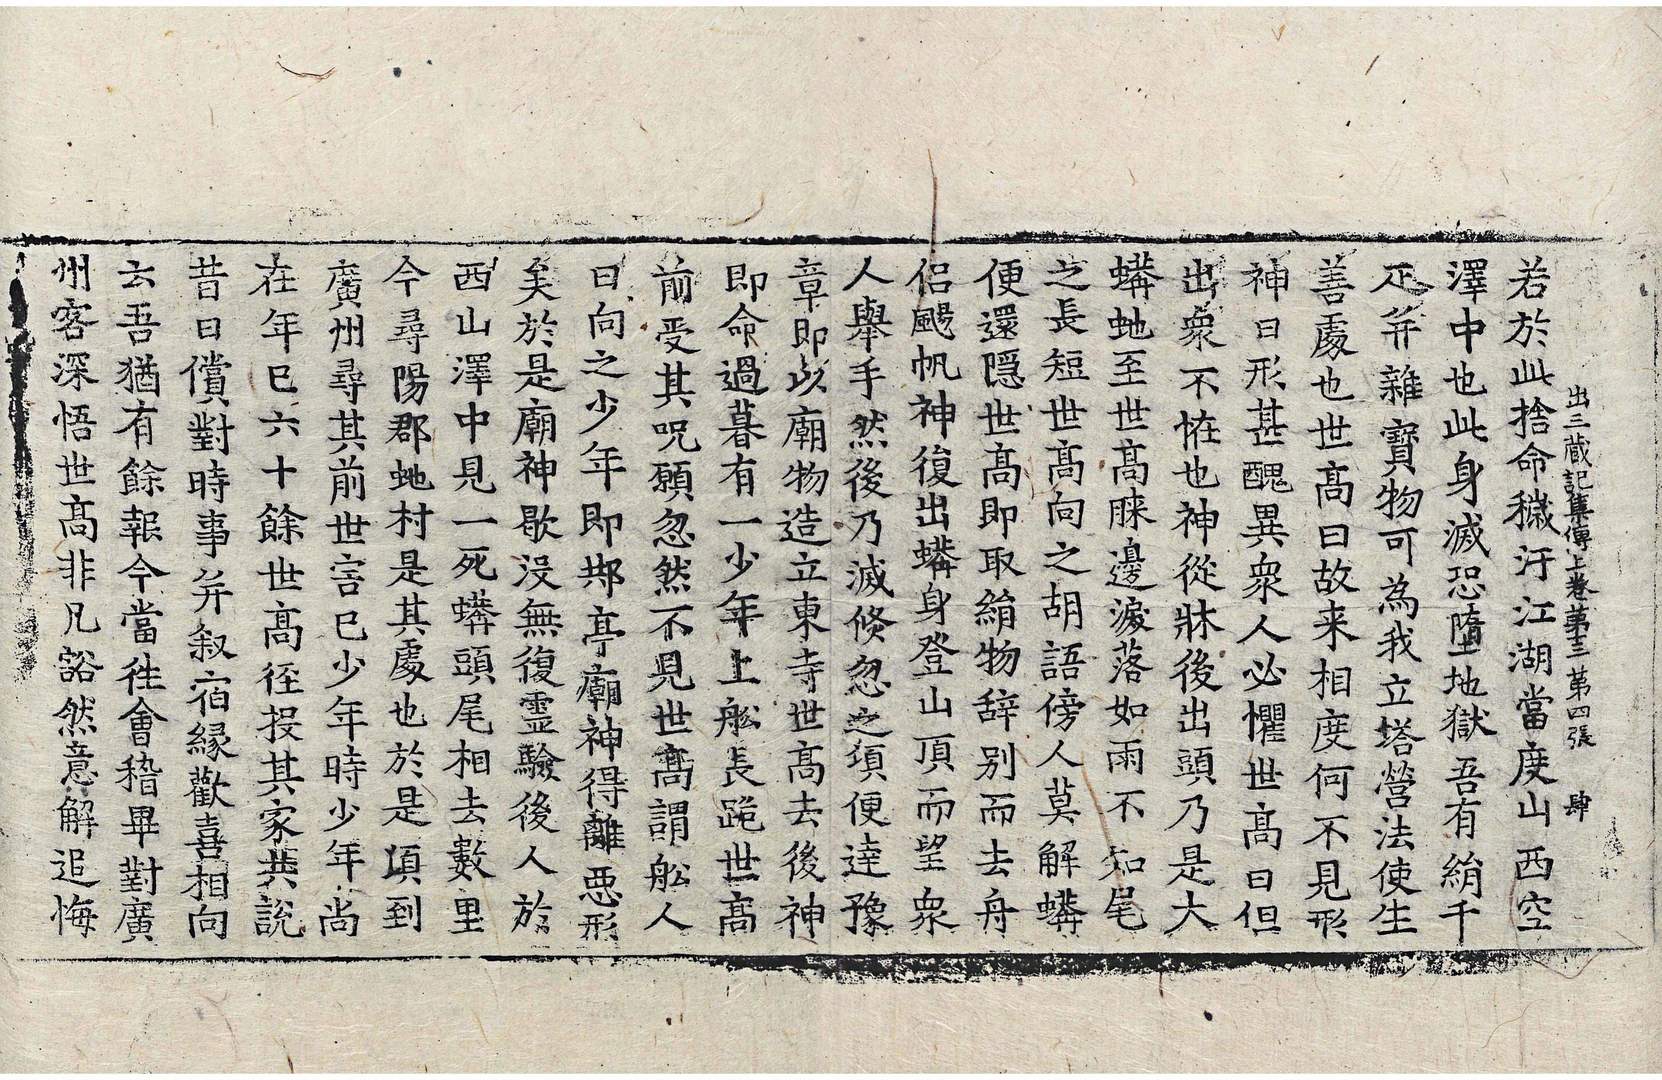 出三藏記集傳上卷第十三 第四張 肆
若於此捨命穢汙江湖當度山西空
澤中也此身滅恐墮地獄吾有絹千
疋并雜寶物可為我立塔營法使生
善處也世高曰故来相度何不見形
神曰形甚醜異衆人必懼世高曰但
出衆不恠也神從牀後出頭乃是大
蟒虵至世高膝邊淚落如雨不知尾
之長短世高向之胡語傍人莫解蟒
便還隱世高即取絹物辞别而去舟
侶颺帆神復出蟒身登山頂而望衆
人舉手然後乃滅倏忽之頃便達豫
章即以廟物造立東寺世高去後神
即命過暮有一少年上舩長跪世高
前受其呪願忽然不見世高謂舩人
曰向之少年即䢼亭廟神得離惡形
矣於是廟神歇没無復靈驗後人於
西山澤中見一死蟒頭尾相去數里
今尋陽郡虵村是其處也於是頃到
廣州尋其前世害己少年時少年尚
在年巳六十餘世高徑投其家共說
昔日償對時事并叙宿緣歡喜相向
云吾猶有餘報今當往會稽畢對廣
州客深悟世高非凡豁然意解追悔